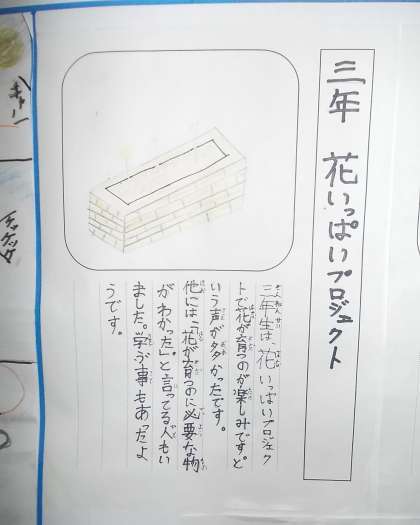 三年 花いっぱいプロジェクト
三年生は、花いっぱいプロジェク
トで花が育つのが楽しみですと
いう声が多かったです。
他には「花が育つのに必要な物
がわかった。」と言ってる人もい
ました。学ぶ事もあったよ
うです。